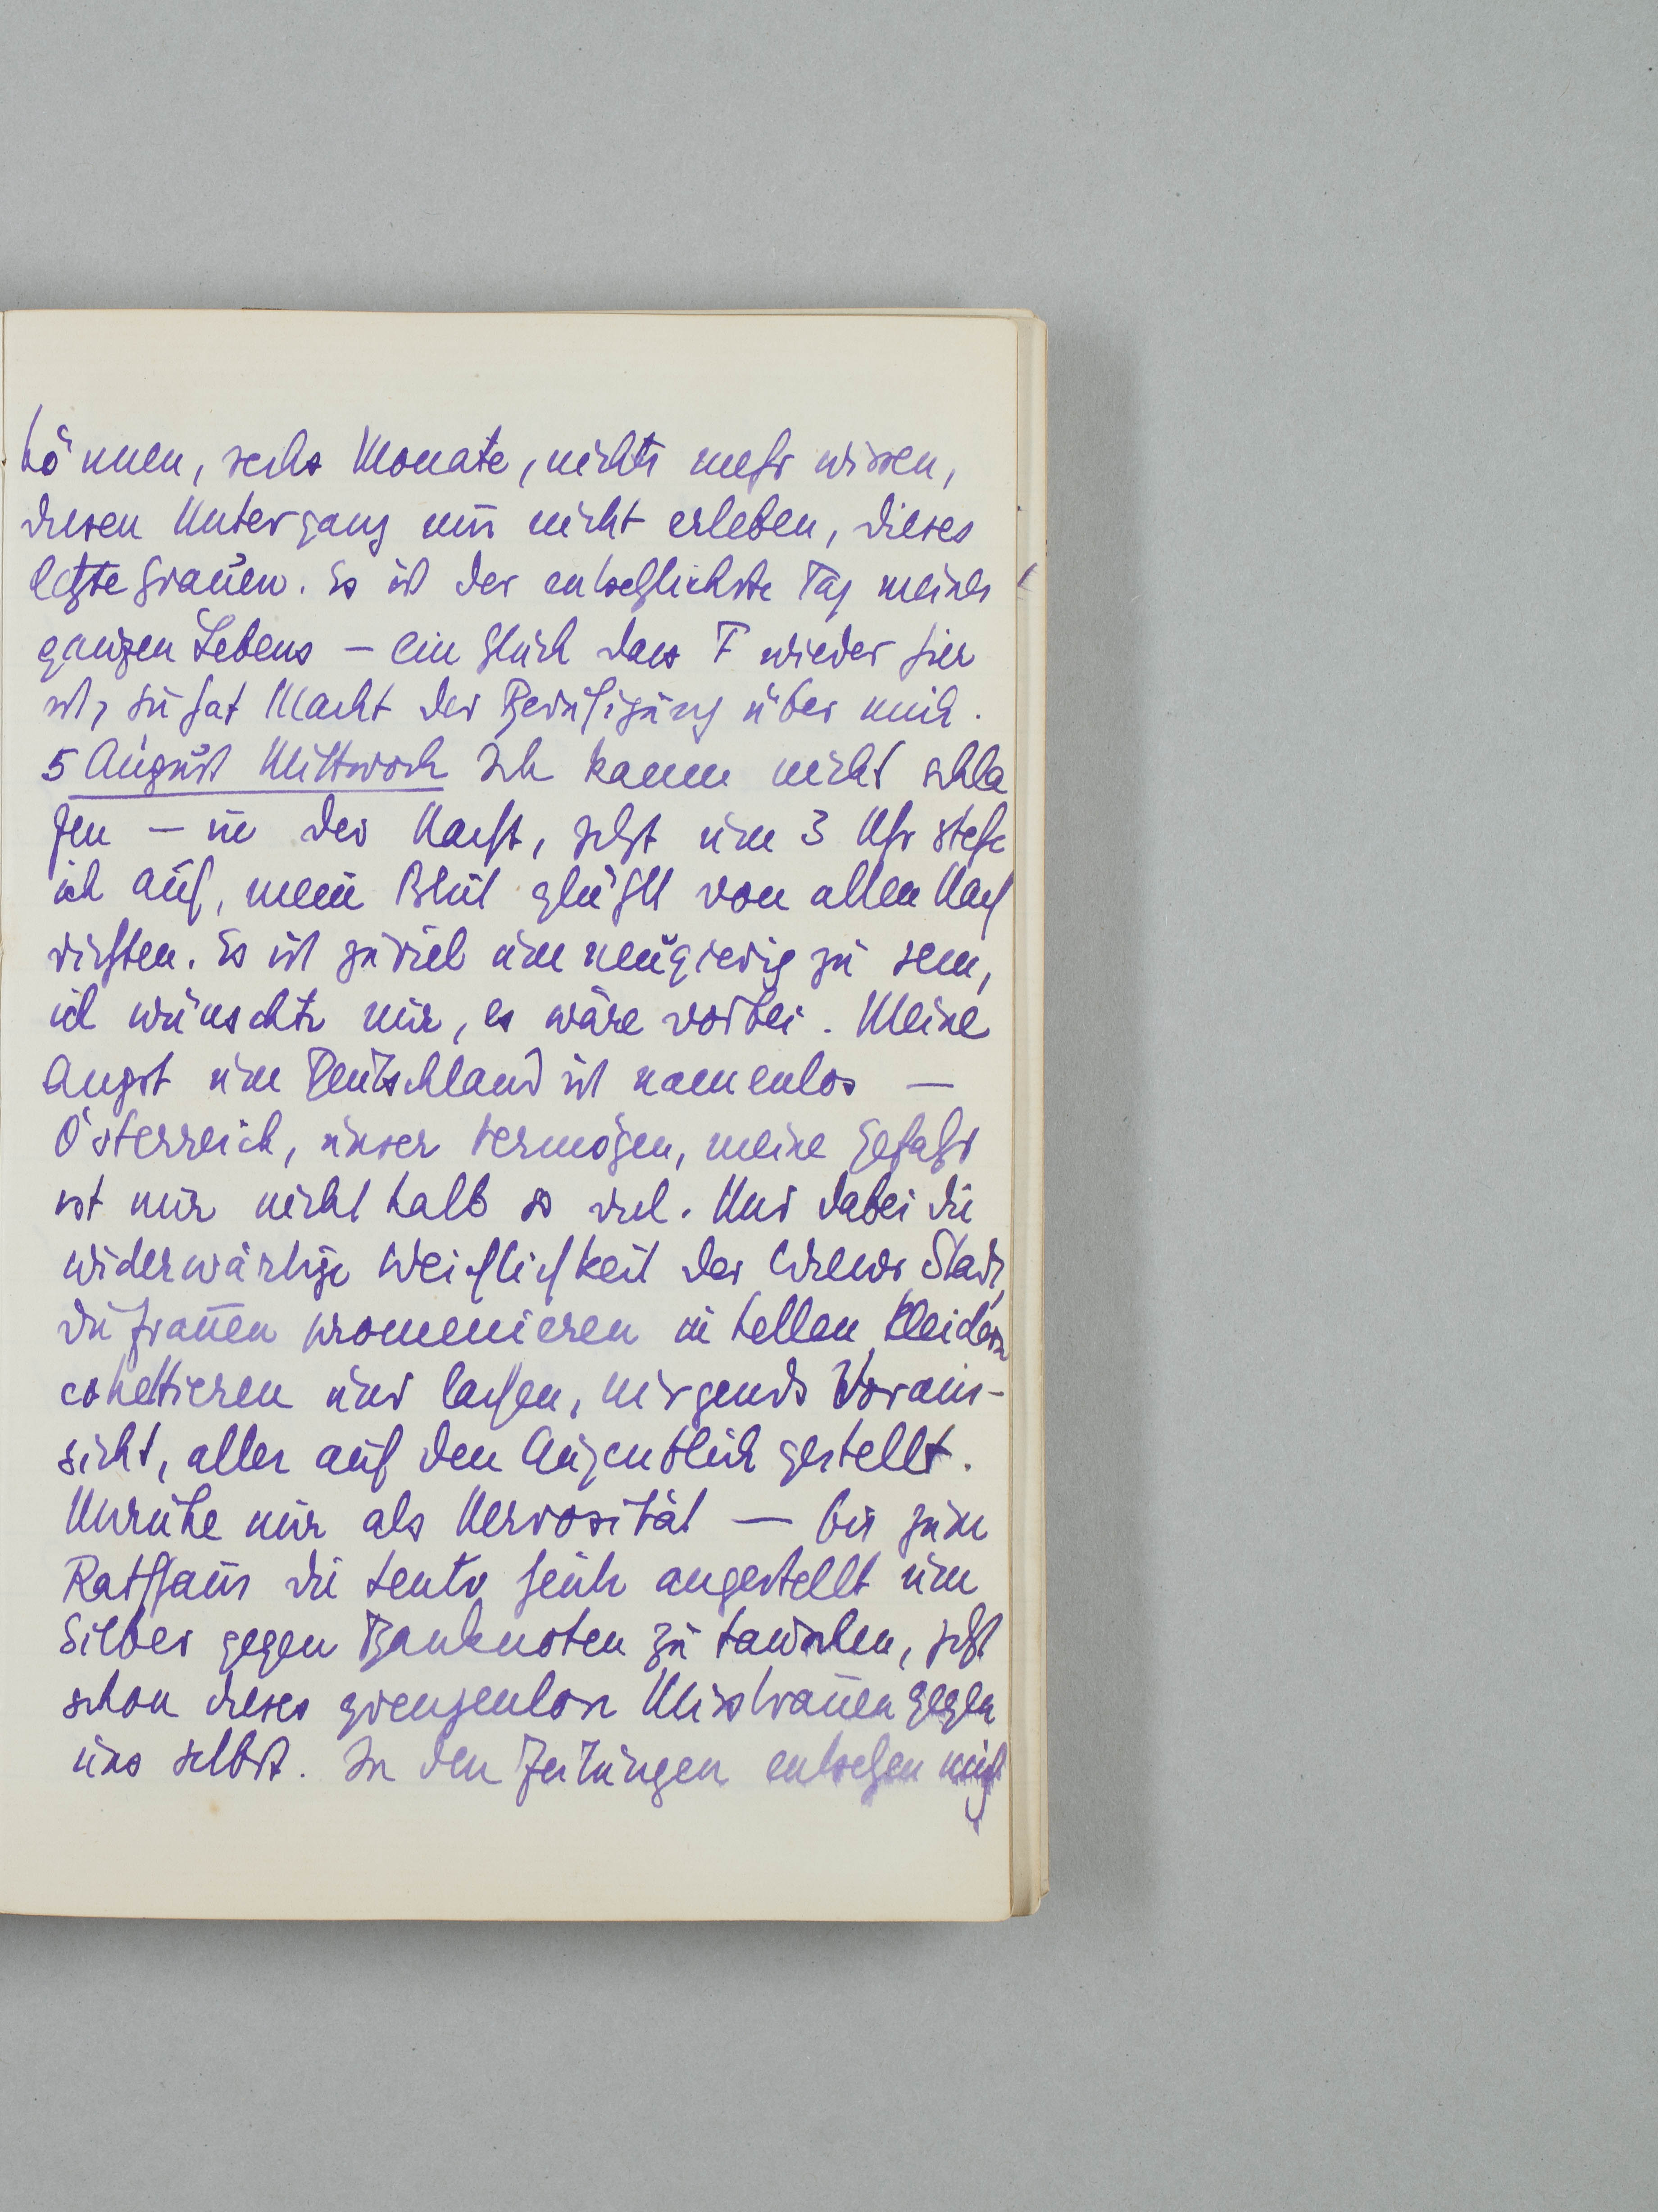 können, sechs Monate, nichts mehr wissen,
diesen Untergang nur nicht erleben, dieses
letzte Grauen. Es ist der entsetzlichste Tag meines
ganzen Lebens – ein Glück dass F wieder hier
ist, sie hat Macht der Beruhigung über mich.
5 August Mittwoch Ich kann nicht schla
fen – in der Nacht, jetzt um 3 Uhr stehe
ich auf, mein Blut glüht von allen Nach
richten. Es ist zuviel um neugierig zu sein,
ich wünschte nur, es wäre vorbei. Meine
Angst um Deutschland ist namenlos –
Österreich, unser Vermögen, meine Gefahr
ist mir nicht halb so viel. Und dabei die
widerwärtige Weichlichkeit der Wiener Stadt,
die Frauen promenieren in hellen Kleidern
cokettieren und lachen, nirgends Voraus-
sicht, alles auf den Augenblick gestellt.
Unruhe nur als Nervosität – bis zum
Rathhaus die Leute heute angestellt um
Silber gegen Banknoten zu tauschen, jetzt
schon dieses grenzenlose Misstrauen gegen
uns selbst. In den Zeitungen entsetzen mich